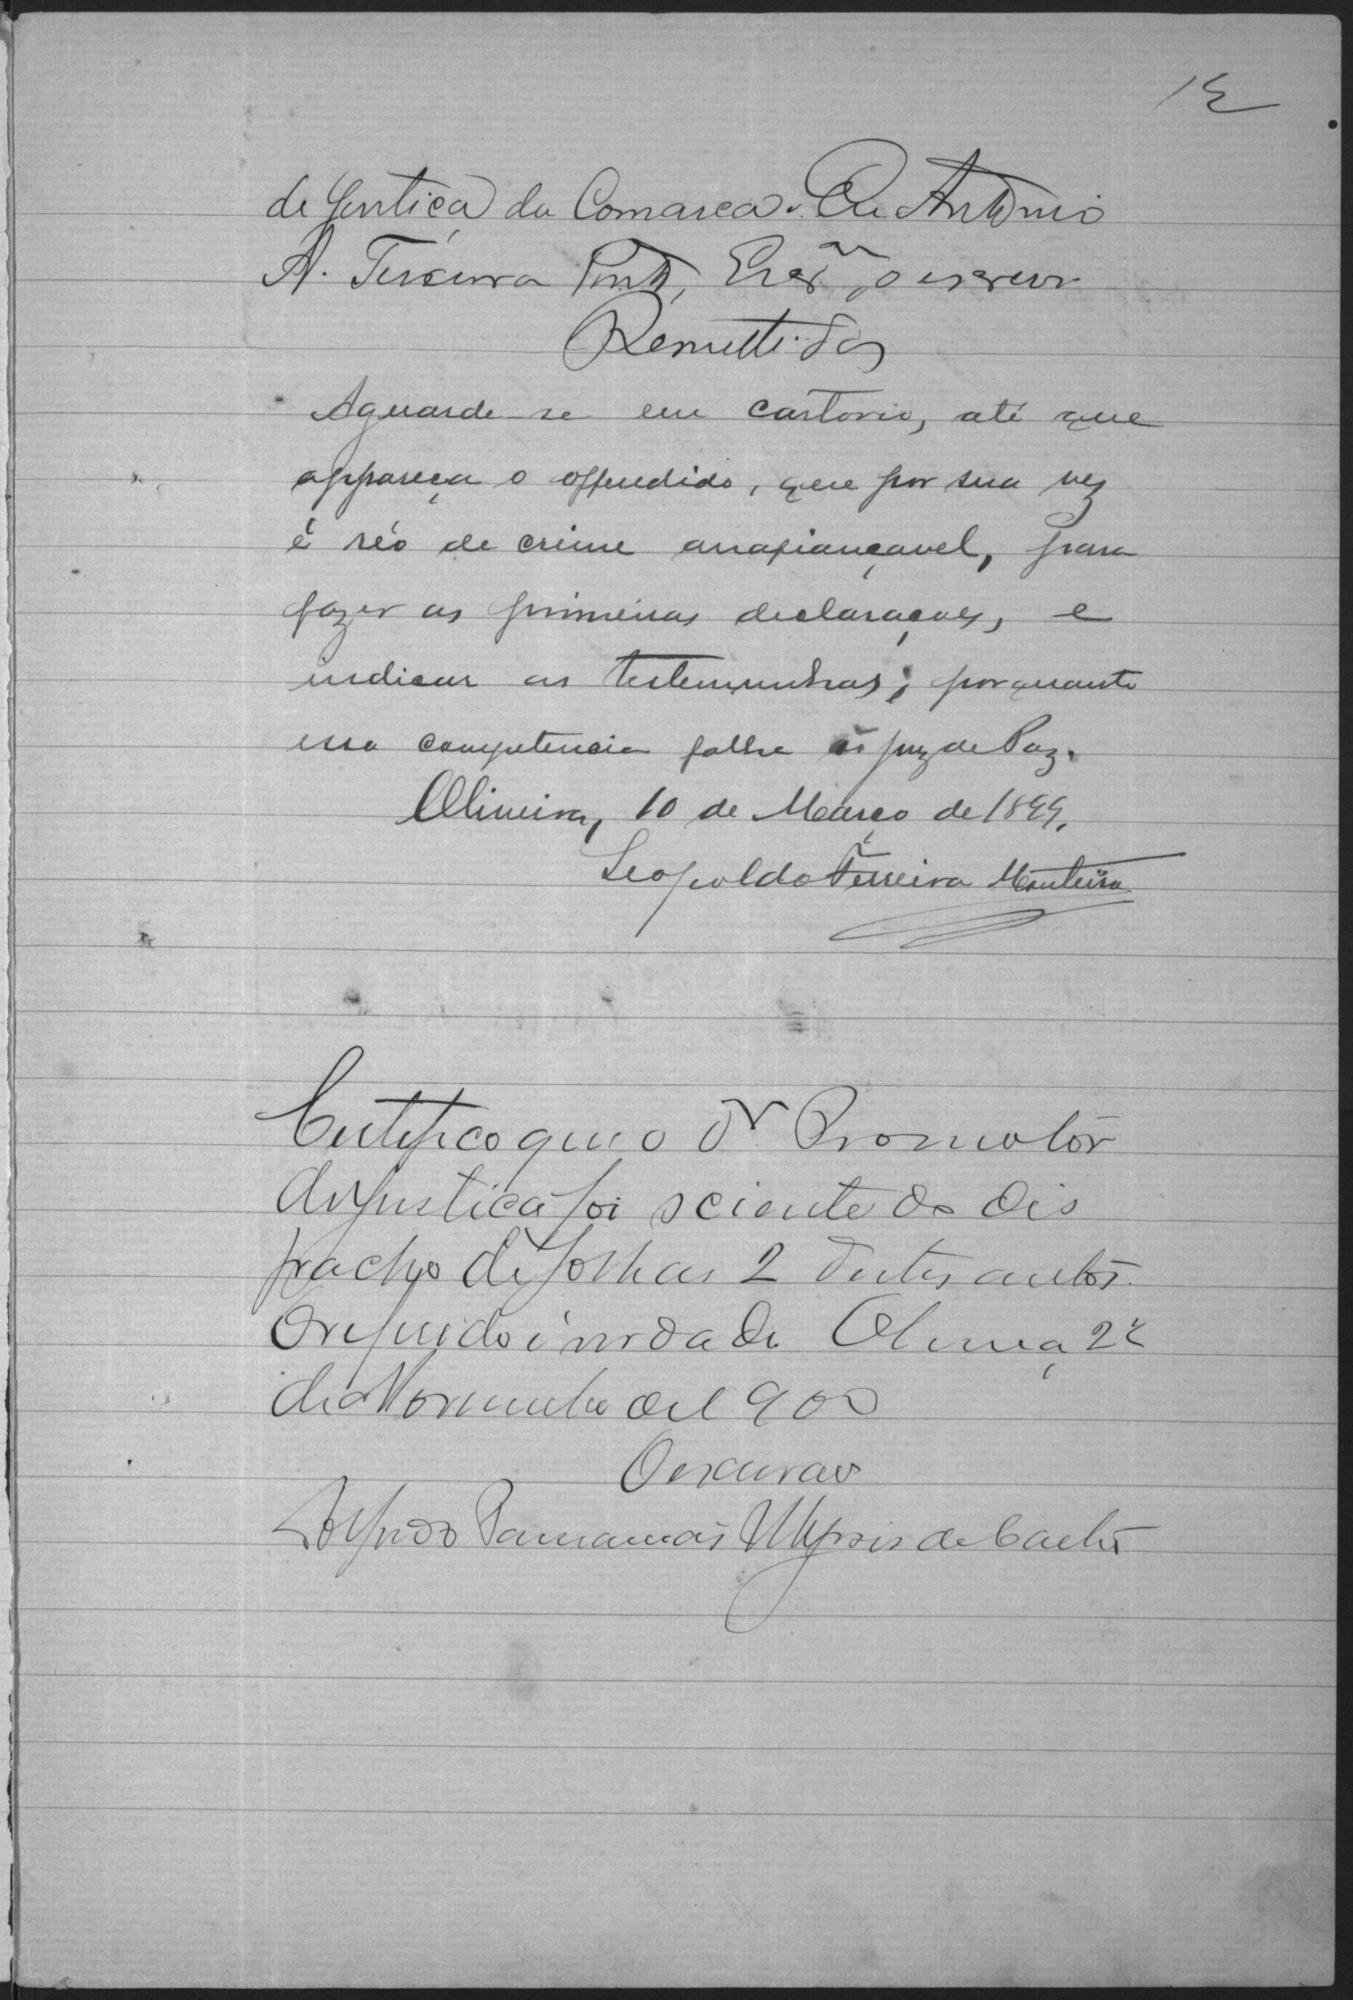 de Justiça da Comarca. Eu Antonio
A. Teixeira Pinto, Escr.ᵐ, o escrevi
Remettidos
Aguarde-se em cartorio, até que
appareça o offendido, que por sua vez
é réo de crime inafiançavel, para
fazer as primeiras declarações, e
indicar as testemunhas; porquanto
essa competencia falha ao juiz de Paz.
Oliveira, 10 de Março de 1899.
Leopoldo Ferreira Monteiro
Certifico que o Dr Promotor
de Justiça foi sciente do dis
pacho de folhas 2 destes autos.
O referido é verdade Oliveira, 22
de Novembro de 1900
O escrivao
Ulysses de Castro